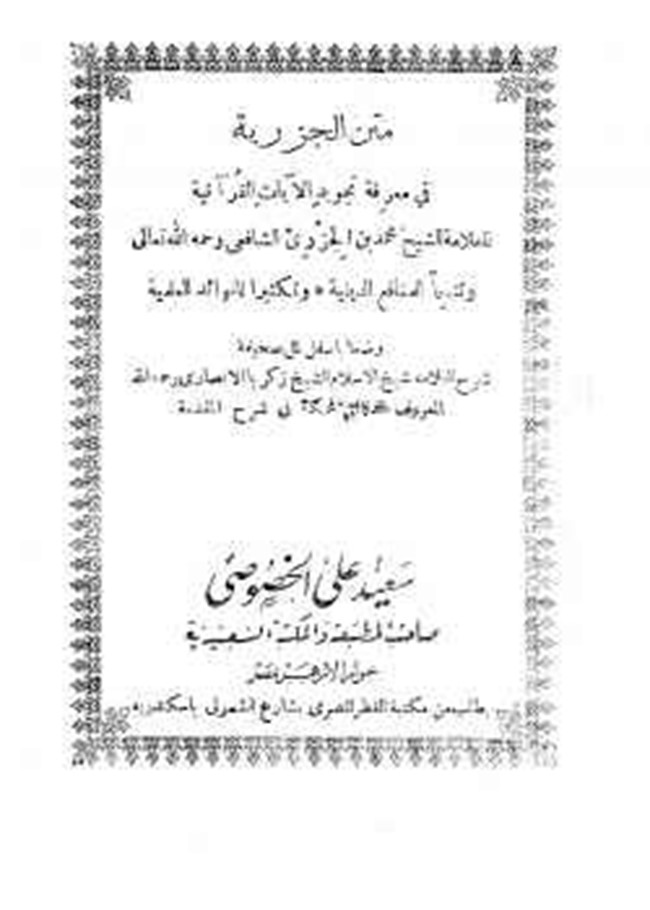 متن الجزرية
في معرفة تجويد الآيات القرآنية
للعلامة الشيخ محمد بن الجزري الشافعي رحمه الله تعالى
المنافع الدينية * وتكثيرا للفوائد العلمية
وضعنا بأسفل كل صحيفة
شرح العلامة شيخ الاسلام الشيخ زكريا الانصارى رحمه الله
المعروف المحكمة في شرح المقدمة
سعيد على الخصوصى
صاحب المطبعة والمكتبة السعيدية
بجوار الازهر بمصر
يطلب من مكتبة القطر المصرى بشارع باسكندرية